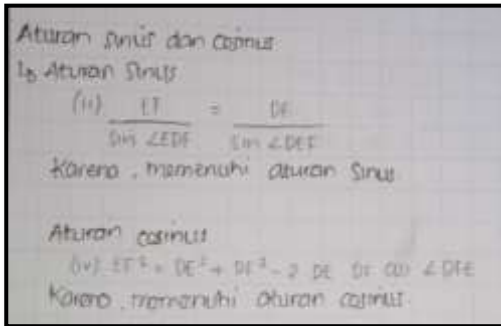 Aturan sinus dan cosinus
1. Aturan Sinus
(ii) EF / sin ∠EDF = DF / sin ∠DEF
Karena, memenuhi aturan Sinus
Aturan cosinus
(iv) EF² = DE² + DF² - 2 DE DF cos ∠DFE
Karena, memenuhi aturan cosinus.